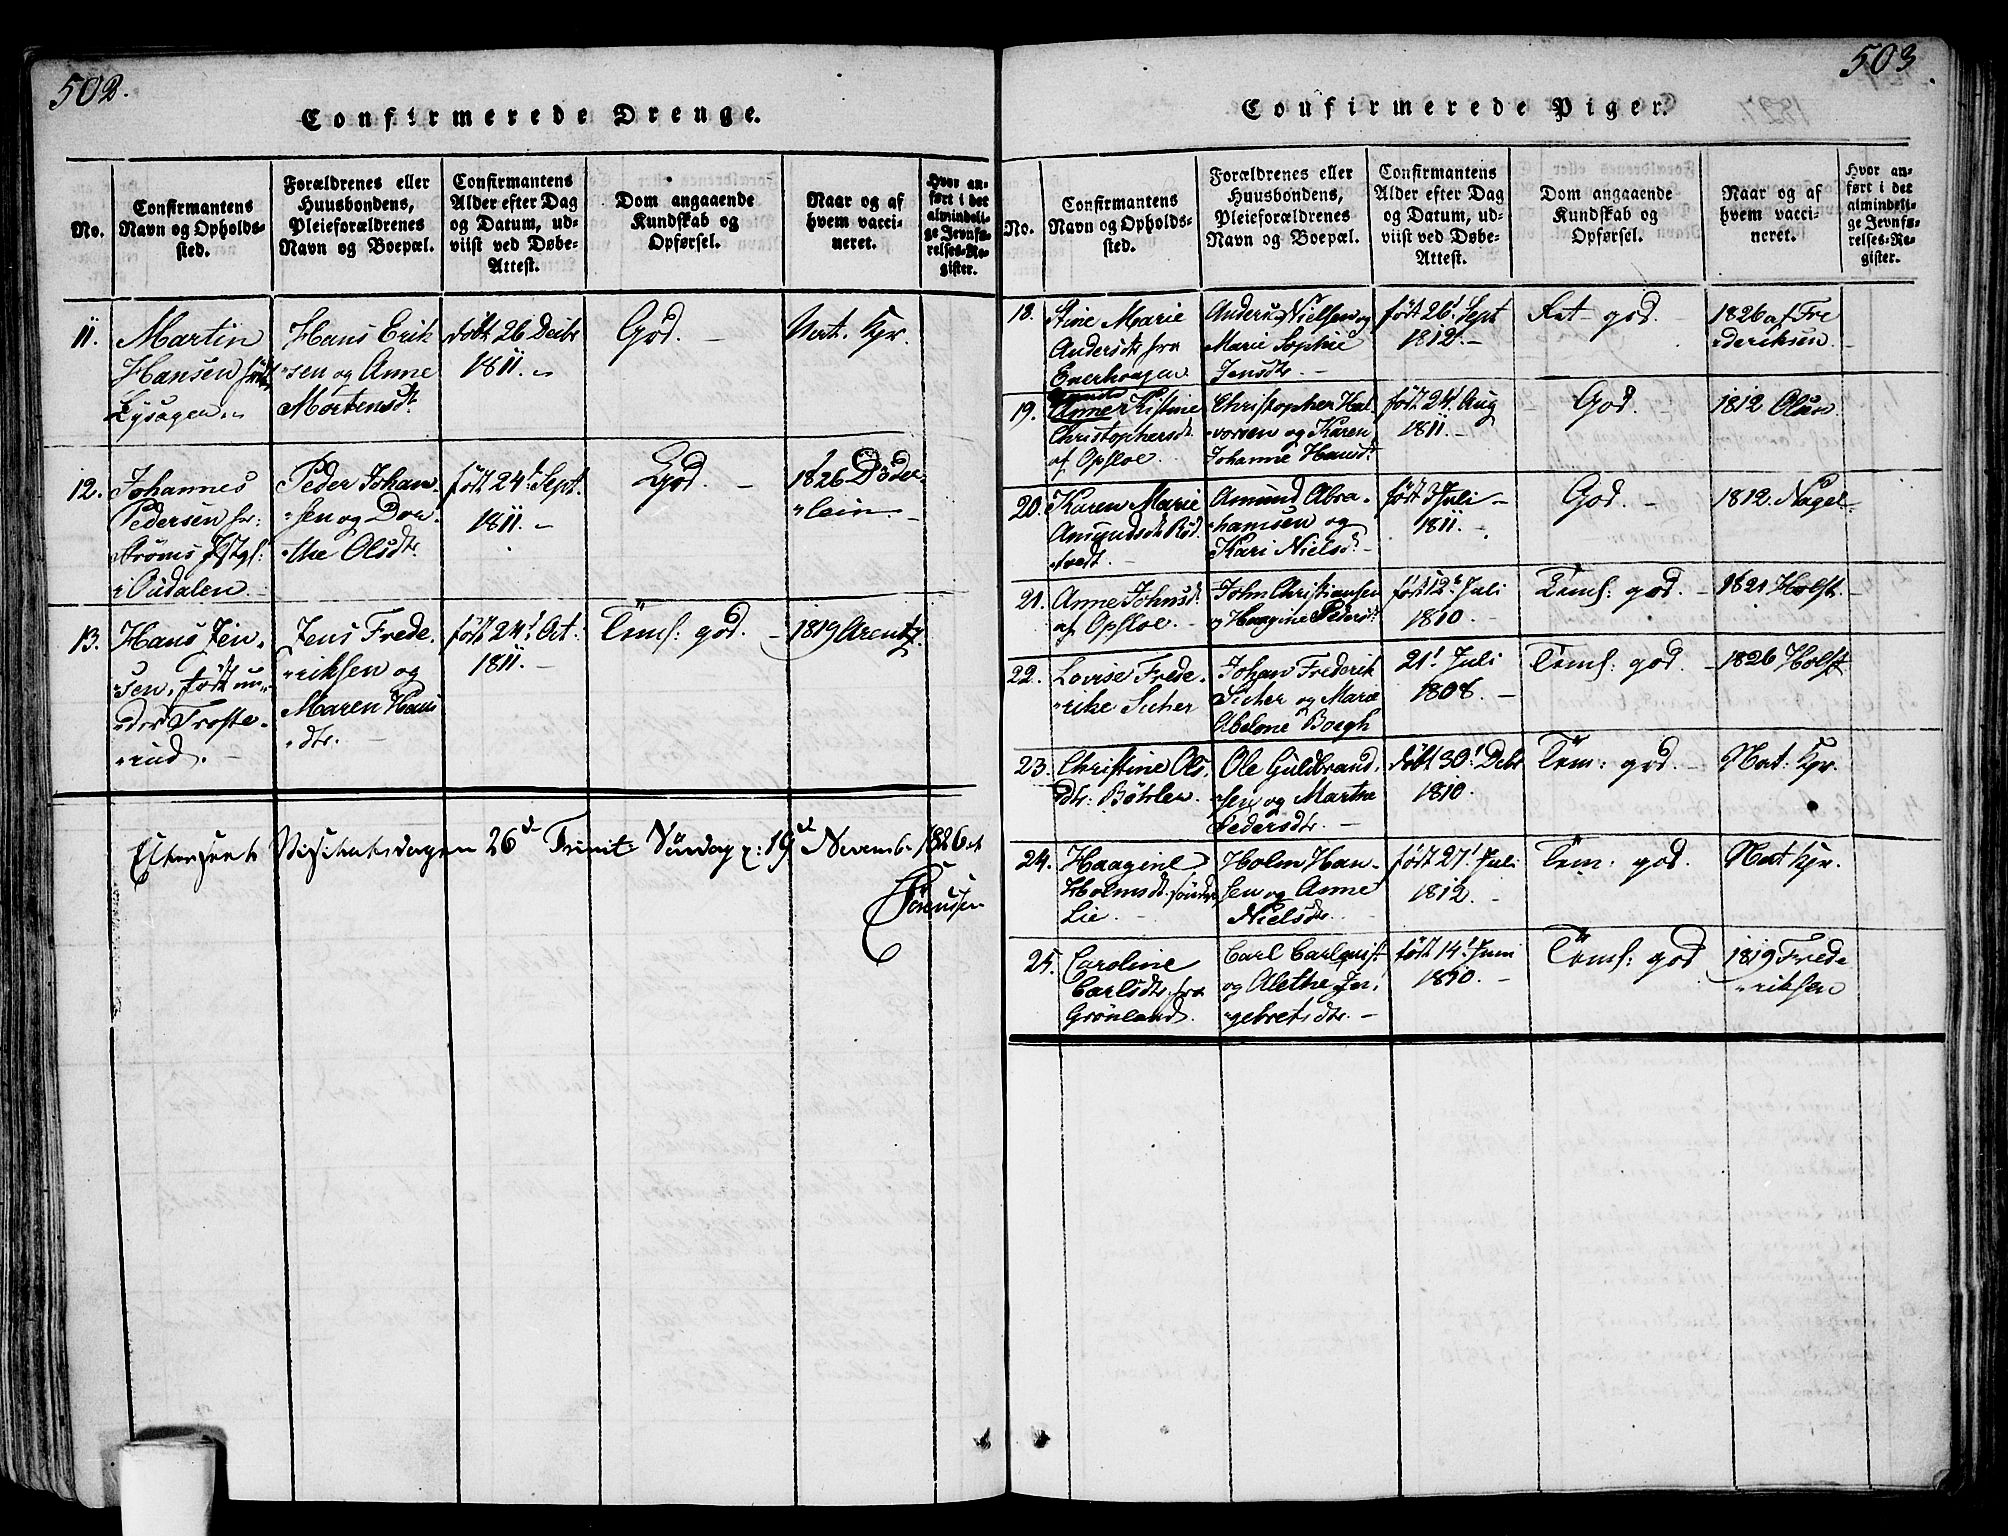 502.
Confirmerede Drenge.
No.
Confirmantens
Navn og Opholds-
sted.
Forældrenes eller
Huusbondens,
Pleieforældrenes
Navn og Boepæl.
Confirmantens
Alder efter Dag
og Datum, ud-
viist ved Døbe-
Attest.
Dom angaaende
Kundskab og
Opførsel.
Naar og af
hvem vacci-
neret.
Hvor an-
ført i det
almindeli-
ge Jevnfø-
relses-Re-
gister.
11.
Martin
Hansen
Lysagen
Hans Erik
sen og Anne
Mortensdt.
født 26 Decbr
1811.
God. -
Nat. Kpr.
12.
Johannes
Pedersen fr:
Strøms
Oudalen
Peder Johan
sen og Dor
the Olsdtr
født 24d Sept.
1811.
God. -
1826 Döder
lein. -
13.
Hans Jen
sen, født un
der Troste
rud. -
Jens Frede
riksen og
Maren Hans
dtr. -
født 24d Oct:
1811. -
Temf: god. -
1819 Arentz
Efterseet Visitatsdagen 26de Trinit Søndag 19de Novemb. 1826 at
Sørensen
503
Confirmerede Piger.
No.
Confirmantens
Navn og Opholds-
sted.
Forældrenes eller
Huusbondens,
Pleieforældrenes
Navn og Boepæl.
Confirmantens
Alder efter Dag
og Datum, ud-
viist ved Døbe-
Attest.
Dom angaaende
Kundskab og
Opførsel.
Naar og af
hvem vacci-
neret.
Hvor an-
ført i det
almindeli-
ge Jevnfø-
relses-Re-
gister.
18.
Stine Marie
Andersdtr fra
Enerhougen
Anders Nielsen og
Marie Sophie
Jensdtr. -
født 26d Sept
1812. -
Ret god. -
1826 af Fre
deriksen
19.
Anne Kistine
Christophersdt.
af Opsloe. -
Christopher Hal
vorsen og Karen
Johanne Hansdt.
født 24d Aug
1811. -
God. -
1812 Olsen
20.
Karen Marie
Amundsdt. Rød
tvedt.
Amund Abra
hamsen og
Kari Nielsdt. -
født 3 Juli -
1811. -
God. -
1812. Nagel.
21.
Anne Johnsdt.
af Opsloe. -
John Christiansen
og Haagine Pedersdt.
født 12d Juli
1810. -
Temf: god. -
1821 Holst.
22.
Lovise Frede
rike Sicher
Johan Frederik
Sicher og Maria
Abelone Borgh
21d Juli
1808. -
Temf: god. -
1826 Holst
23.
Christine Ols
dtr: Bøhler.
Ole Guldbrand
sen og Martha
Pedersdtr. -
født 30d Debr
1810.
Tem: god. -
Nat: Kpr.
24.
Haagine
Holmsdt. søndre
Lie. -
Holm Han
sen og Anne
Nielsdtr. -
født 27d Juli
1812. -
Tem: god.
Nat Kpr.
25.
Caroline
Carlsdtr fra
Grønland.
Carl Carlquist
og Alethe In
gebretsdtr. -
født 14d Juni
1810. -
Temf: god
1819 Frede
riksen